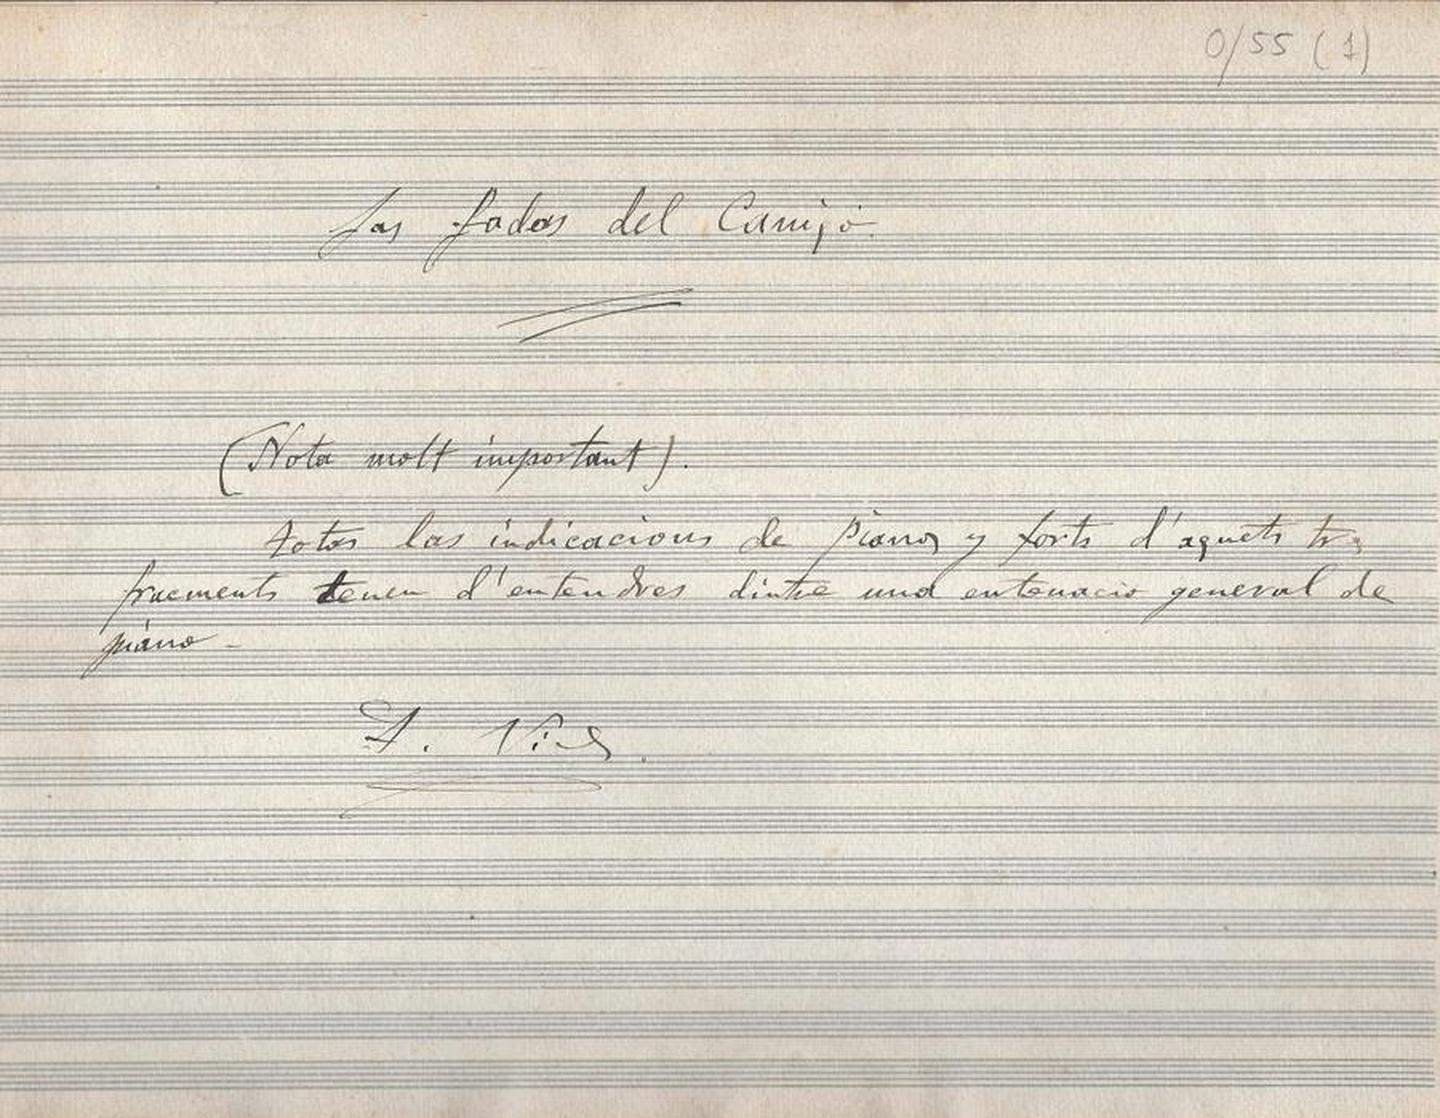 0/55 (1)
Las fadas del Canigó.
(Nota molt important).
totas las indicacions de pianos y forts d'aquets tres
fracments tenen d'entendres dintre una entonacio general de
piano -